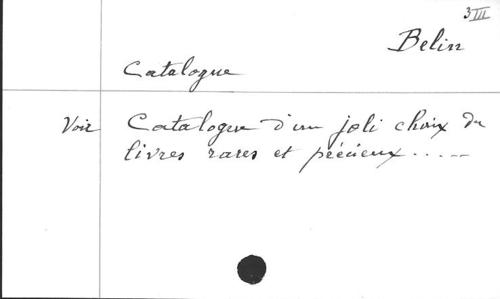 3 III
Belin
Catalogue
Voir Catalogue d'un joli choix de
livres rares et précieux.....